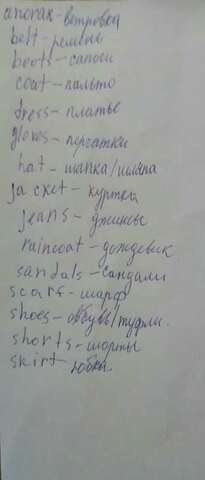 anorak-ветровка
belt-ремень
boots-сапоги
coat-пальто
dress-платье
gloves-перчатки
hat-шапка/шляпа
jacket-куртка
jeans-джинсы
raincoat-дождевик
sandals-сандали
scarf-шарф
shoes-обувь/туфли.
shorts-шорты
skirt-юбка